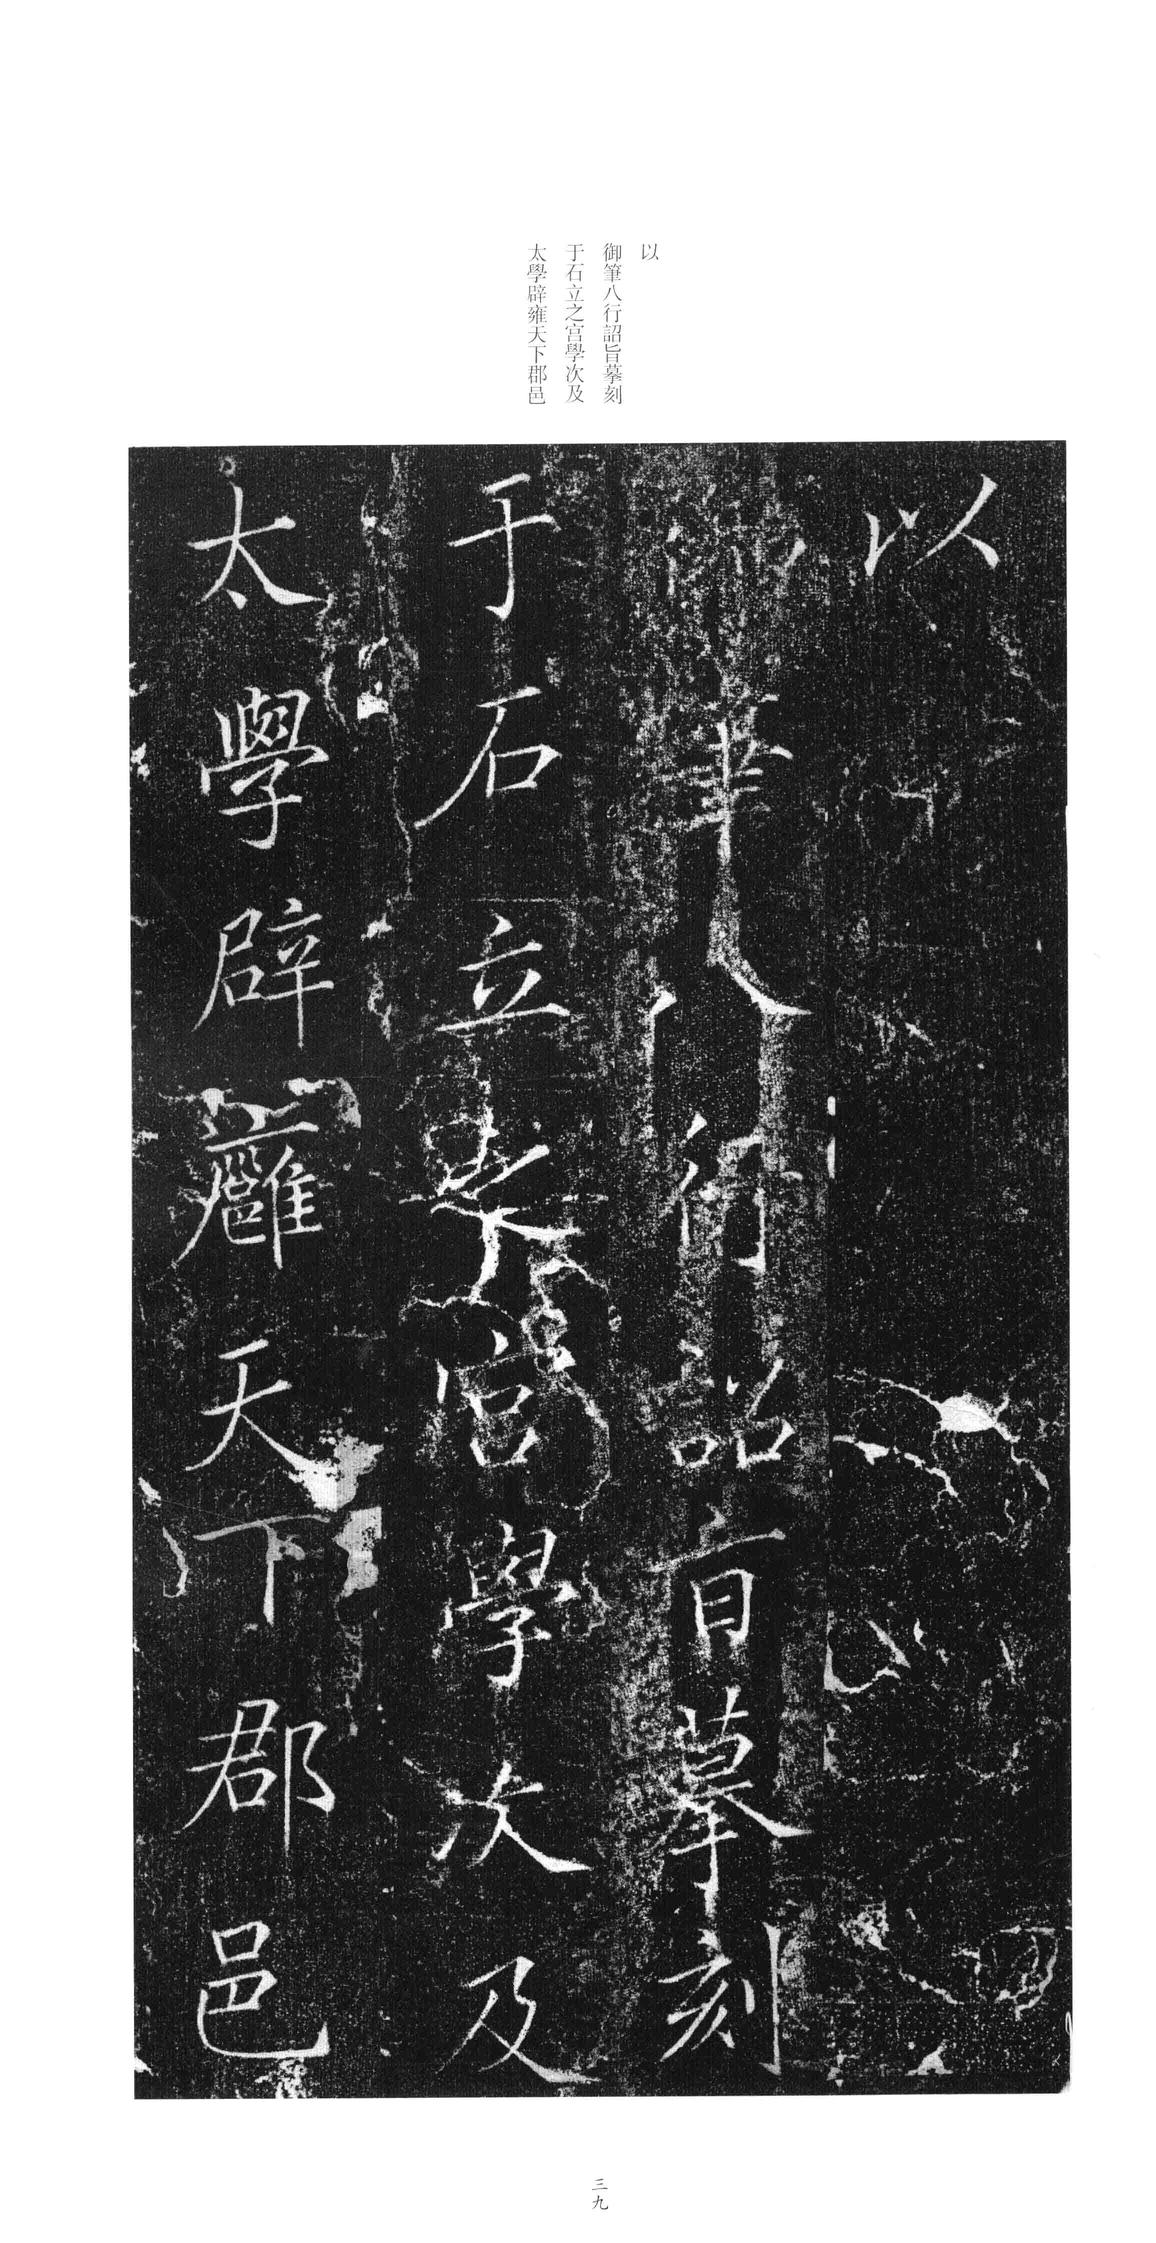 以
御筆八行詔旨摹刻
于石立之宫學次及
太學辟雍天下郡邑
以
御筆八行詔旨摹刻
于石立之宮學次及
太學辟廱天下郡邑
三九